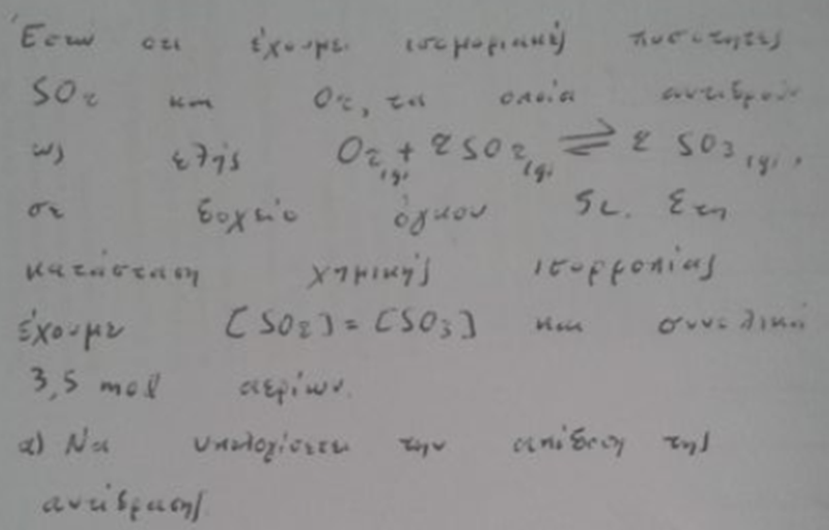 Έστω ότι έχουμε ισομοριακές ποσότητες
SO₂ και O₂, τα οποία αντιδρούν
ως εξής O₂(g) + 2SO₂(g) ⇌ 2 SO₃(g),
σε δοχείο όγκου 5L. Στη
κατάσταση χημικής ισορροπίας
έχουμε [SO₂] = [SO₃] και συνολικά
3,5 mol αερίων.
α) Να υπολογίσετε την απόδοση της
αντίδρασης